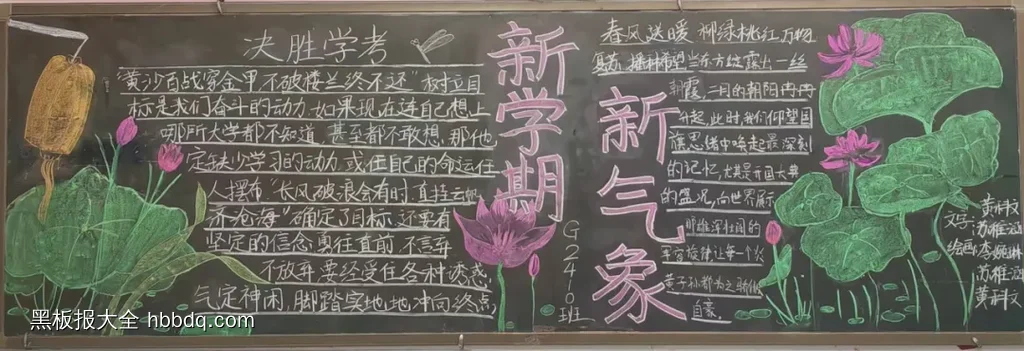 决胜学考
“黄沙百战穿金甲不破楼兰终不还”树立目
标是我们奋斗的动力,如果现在连自己想上
哪所大学都不知道,甚至都不敢想,那他
定缺少学习的动力,或任自己的命运任
人摆布“长风破浪会有时,直挂云帆
济沧海”确定了目标,还要有
坚定的信念勇往直前,不言弃
不放弃要经受住各种诱惑,
气定神闲,脚踏实地地冲向终点
新学期
G2410班
新气象
春风送暖 柳绿桃红 万物
当东方绽露出一丝
朝霞,二月的朝阳冉冉
升起,此时我们仰望国
旗思绪中唤起最深刻
的记忆,尤其是在国大典
的盛况,向世界展示
那雄浑壮阔的
旋律让每一个炎
黄子孙都为之骄傲
自豪.
文字:
黄梓汶
苏雅涵
绘画:
李
苏雅涵
黄梓汶
黑板报大全 hbbdq.com